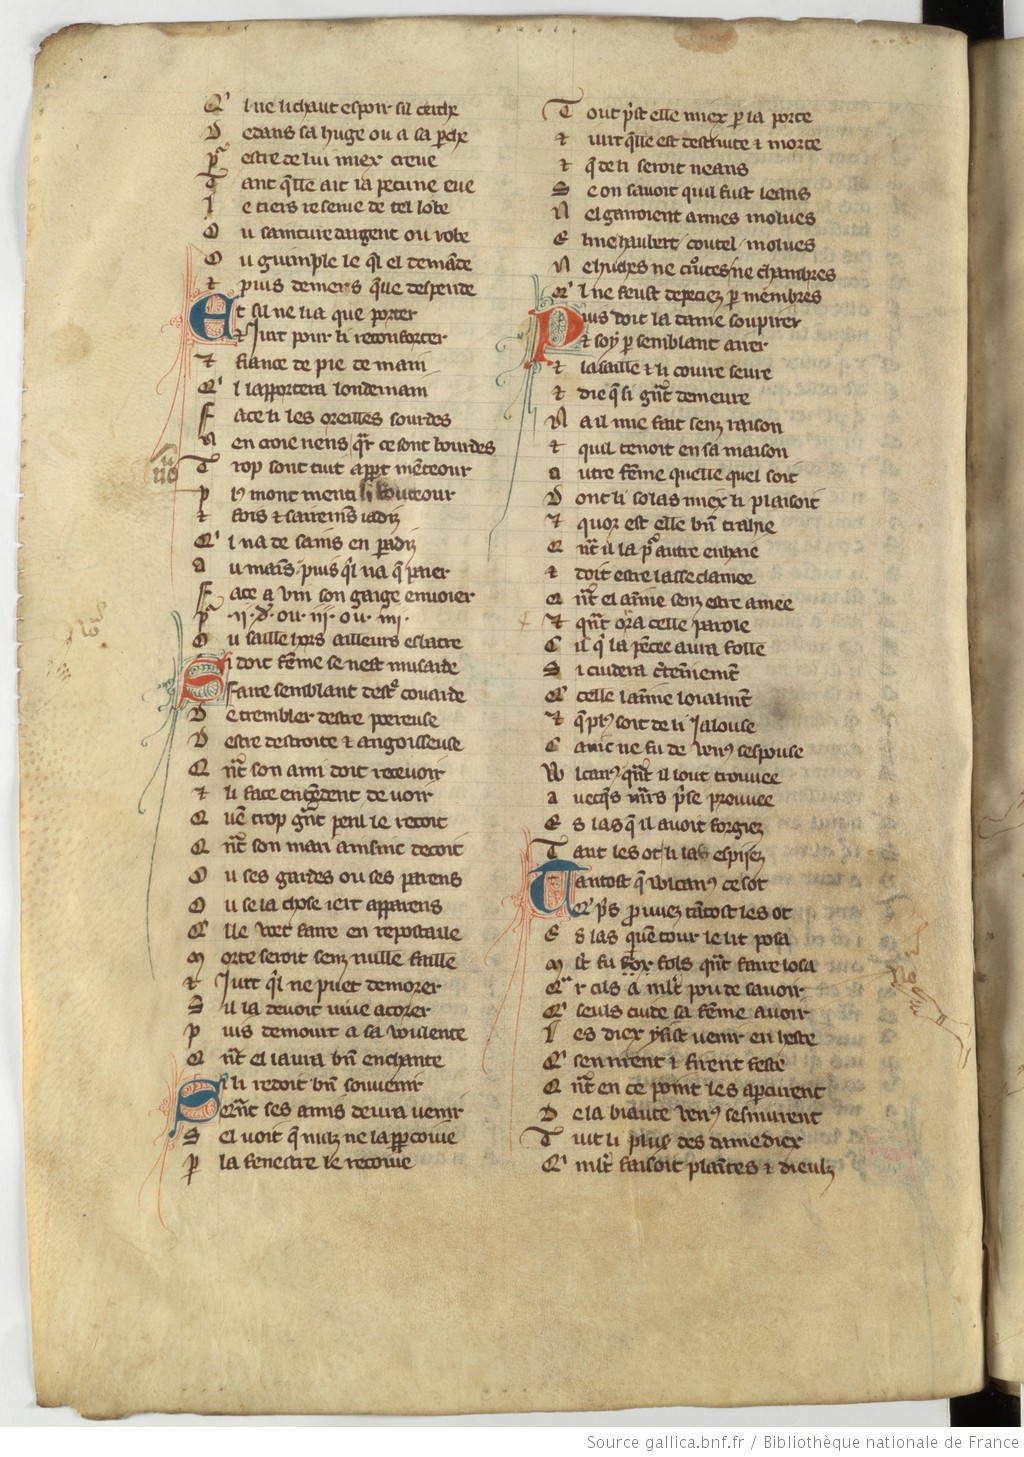 Q'l ne li chaut espoir sil cerche
Dedans sa huge ou a sa perche
Pour estre de lui miex creue
Tant q̃lle ait la pecune eue
Le tiers reserve de tel lobe
Ou sainture dargent ou robe
Ou guimple le q̃l el demãde
Et puis deniers que despende
Et sil ne li a que porter
Et Jurt pour li reconforter
Et fiance de pie de main
Q'l lapportera londemain
Face li les oreilles sourdes
Nen croie nens q̃r ce sont bourdes
Trop sont tuit appt mẽteour
Plꝯ mont menti li
Et fois et sairemẽs iadiz
Q'l na de sains en padiz
Au mains puis q̃l na q̃ paier
Face a vin son gaige envoier
Pour .ii. d'. ou .iii. ou .iiii.
Ou saille hors ailleurs eslatre
Si doit fẽme se nest musarde
Faire semblant destre couarde
De trembler destre poereuse
Destre destroite et angoisseuse
Qñt son ami doit recevoir
Et li face entẽdent de voir
Quẽ trop grñt peril le recoit
Qñt son mari ainsinc decoit
Ou ses gardes ou ses parens
Ou se la chose iert apparens
Q'lle veet faire en repostaille
Morte seroit senz nulle faille
Et Jurt q̃l ne puet demorer
Sil la devoit vive acorer
Puis demourt a sa voulente
Qñt el laura bñ enchante
Si li redoit bñ souvenir
Qñt ses amis devra venir
Sel voit q̃ nulz ne lappcoive
P la fenestre le recoive
Tout pst elle miex p la porte
Et iurt q̃lle est destruite et morte
Et q̃ de li seroit neans
Se on savoit quil fust leans
Nel garroient armes molues
Elme haubert coutel molues
Ne huches ne chambres
Q'l ne feust depeciez p membres
Puis doit la dame soupirer
Et soy p semblant airer
Et lassaille et li coure seure
Et die q̃ si grñt demeure
Na il mie fait senz raison
Et quil tenoit en sa maison
Autre fẽme quelle quel soit
Dont li solas miex li plaisoit
Et quor est elle bñ traihe
Qñt il la pour autre enhaie
Et doit estre lasse clamee
Qñt el aime senz estre amee
Et quñt orra celle parole
Cil q' la pẽsee aura folle
Si cuidera
Q' celle laime loialmt
Et q̃ plꝯ soit de li Jalouse
Conc ne fu de venꝯ sespouse
Wlcanꝯ quñt il lout trouvee
Avecqs mrs pse prouvee
Es las q̃ il avoit forgiez
Tant les ot li las espiez
Tantost q̃ wlcanꝯ ce sot
Q' pˢ p̃rouvez tãtost les ot
Es las quẽtour le lit posa
Mlt fu fox fols qñt faire losa
Q'r cils a mlt pou de savoir
Q' seuls cuide sa fẽme avoir
Les diex y fist venir en heste
Q' sen rirent et firent feste
Qñt en ce point les apcurent
De la biaute venꝯ sesmurent
Tuit li plus des damediex
Q' mlt faisoit plaintes et dieulz